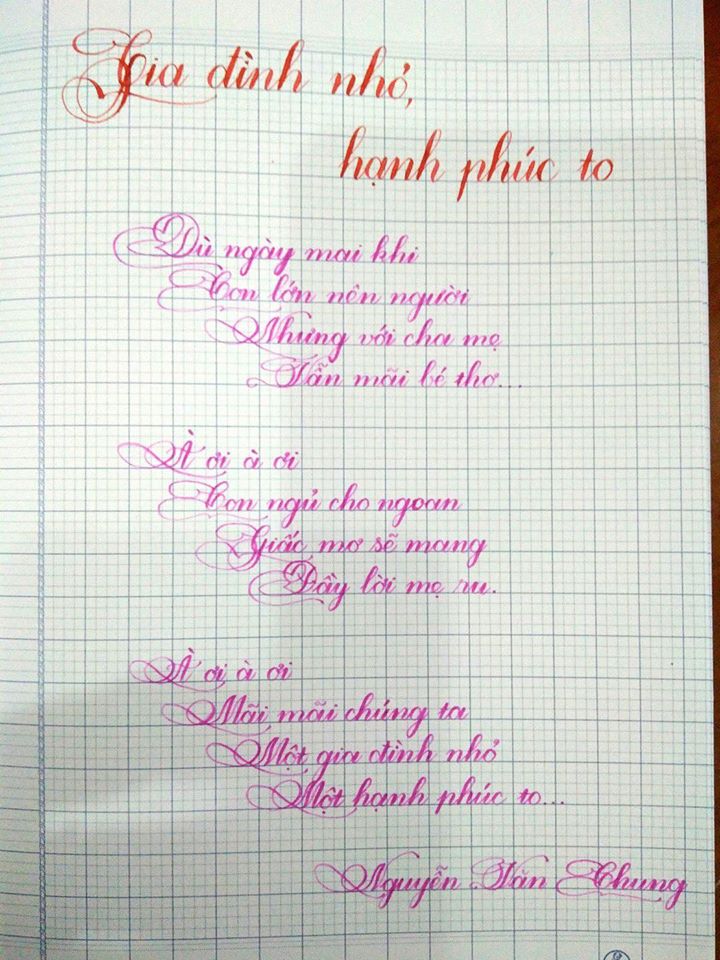 Gia đình nhỏ,
hạnh phúc to
Dù ngày mai khi
Con lớn nên người
Nhưng với cha mẹ
Vẫn mãi bé thơ...
À ơi à ơi
Con ngủ cho ngoan
Giấc mơ sẽ mang
Đầy lời mẹ ru.
À ơi à ơi
Mãi mãi chúng ta
Một gia đình nhỏ
Một hạnh phúc to...
Nguyễn Văn Chung